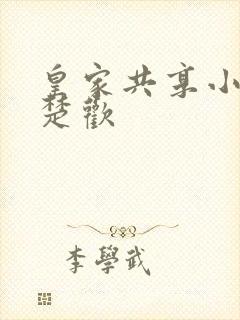 皇家共享小
楚歡
李學武